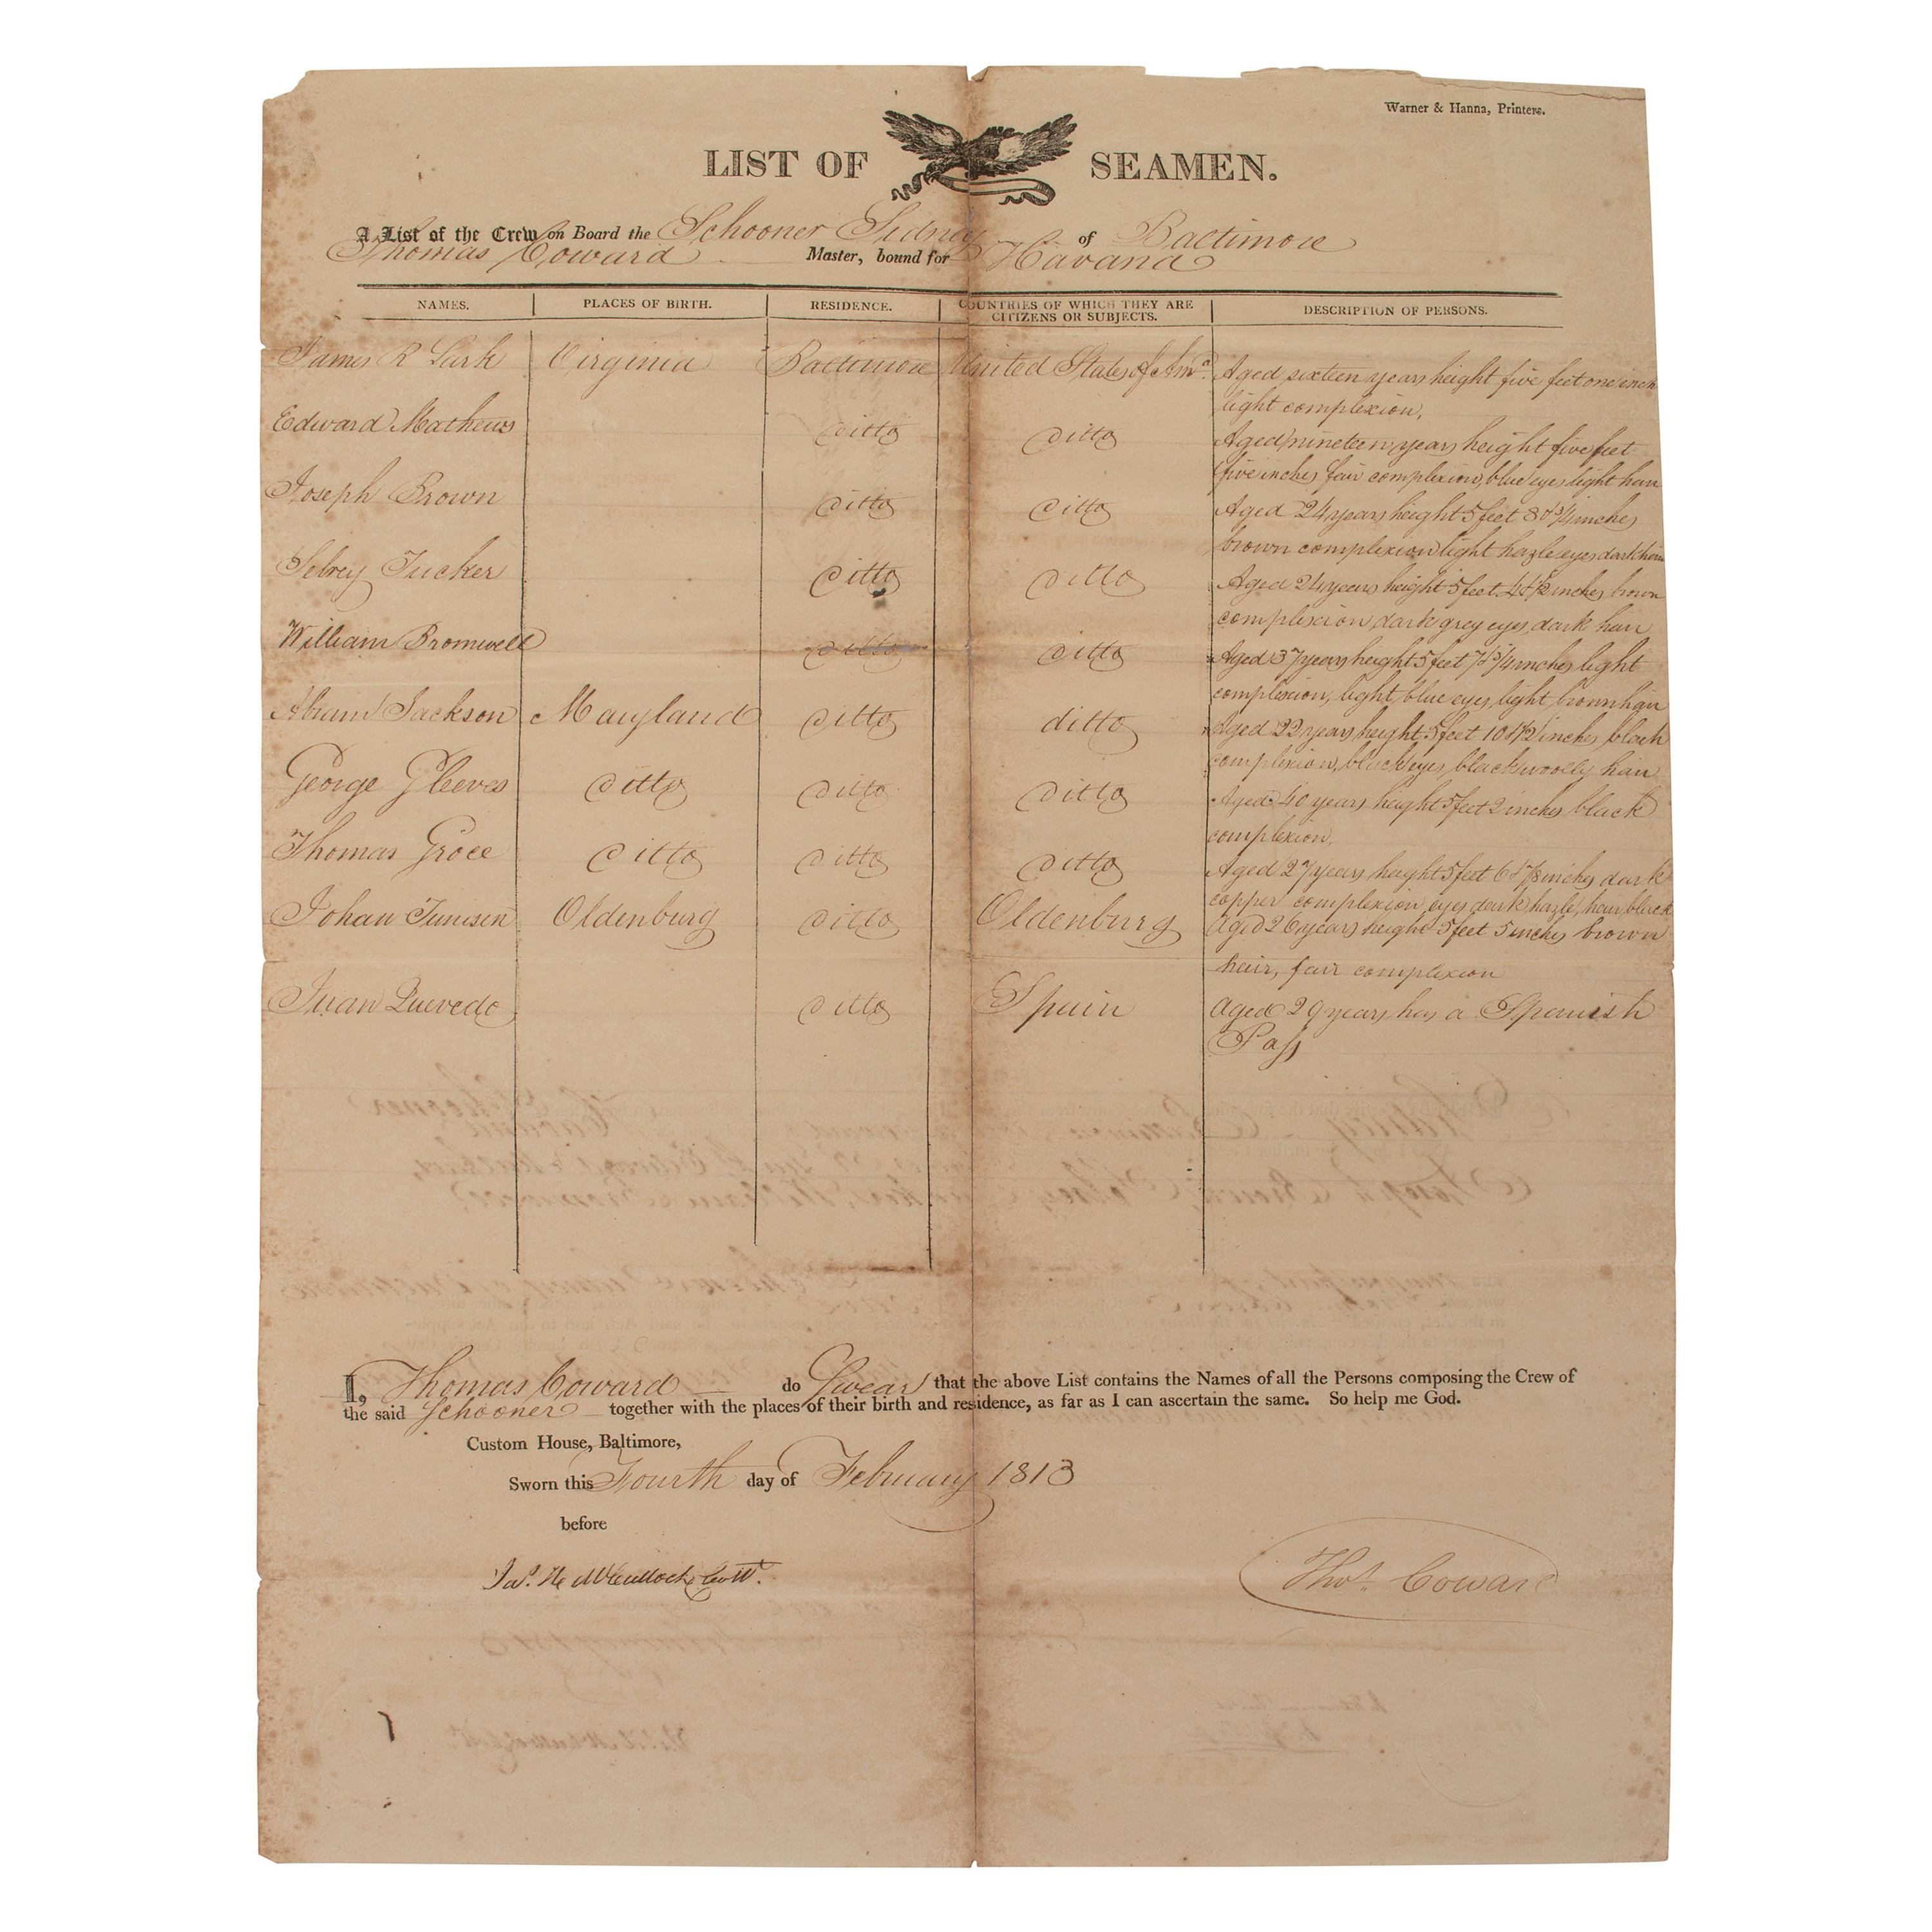 Warner & Hanna, Printers.
LIST OF SEAMEN.
A List of the Crew on Board the Schooner Sidney of Baltimore
Thomas Coward Master, bound for Havana
NAMES. PLACES OF BIRTH. RESIDENCE. COUNTRIES OF WHICH THEY ARE CITIZENS OR SUBJECTS. DESCRIPTION OF PERSONS.
James R Lurk Virginia Baltimore United States of Ama. Aged sixteen years height five feet one inch
light complexion,
Edward Mathews ditto ditto Aged nineteen years height five feet
five inches fair complexion, blue eyes light hair
Joseph Brown ditto ditto Aged 24 years height 5 feet 8 & 3/4 inches
brown complexion light hazle eyes dark hair
Selvey Tucker ditto ditto Aged 24 years height 5 feet 4 & 1/2 inches brown
complexion, dark grey eyes, dark hair
William Bromwell ditto ditto Aged 37 years height 5 feet 7 & 3/4 inches light
complexion, light blue eyes, light brown hair
Abram Jackson Maryland ditto ditto Aged 22 years height 5 feet 10 & 1/2 inches black
complexion, black eyes, black woolly hair
George Gleeves ditto ditto ditto Aged 40 years height 5 feet 2 inches black
complexion,
Thomas Groce ditto ditto ditto Aged 27 years height 5 feet 6 & 7/8 inches dark
copper complexion, eyes dark hazle, hair black
Johan Tunisen Oldenburg ditto Oldenburg Aged 26 years height 5 feet 5 inches brown
hair, fair complexion
Juan Quevedo ditto Spain Aged 29 years has a Spanish
Pass
I, Thomas Coward do Swear that the above List contains the Names of all the Persons composing the Crew of
the said Schooner together with the places of their birth and residence, as far as I can ascertain the same. So help me God.
Custom House, Baltimore,
Sworn this Fourth day of February 1813
before
Jas. H. McCulloch Collr.
Thos. Coward